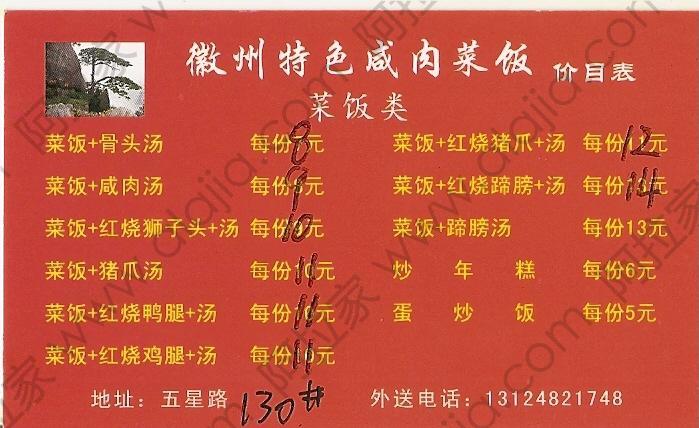 徽州特色咸肉菜饭 价目表
菜饭类
菜饭+骨头汤 每份8元
菜饭+咸肉汤 每份9元
菜饭+红烧狮子头+汤 每份10元
菜饭+猪爪汤 每份11元
菜饭+红烧鸭腿+汤 每份11元
菜饭+红烧鸡腿+汤 每份11元
菜饭+红烧猪爪+汤 每份12元
菜饭+红烧蹄膀+汤 每份14元
菜饭+蹄膀汤 每份13元
炒年糕 每份6元
蛋炒饭 每份5元
地址：五星路 130# 外送电话：13124821748
阿拉家 www.dajia.com